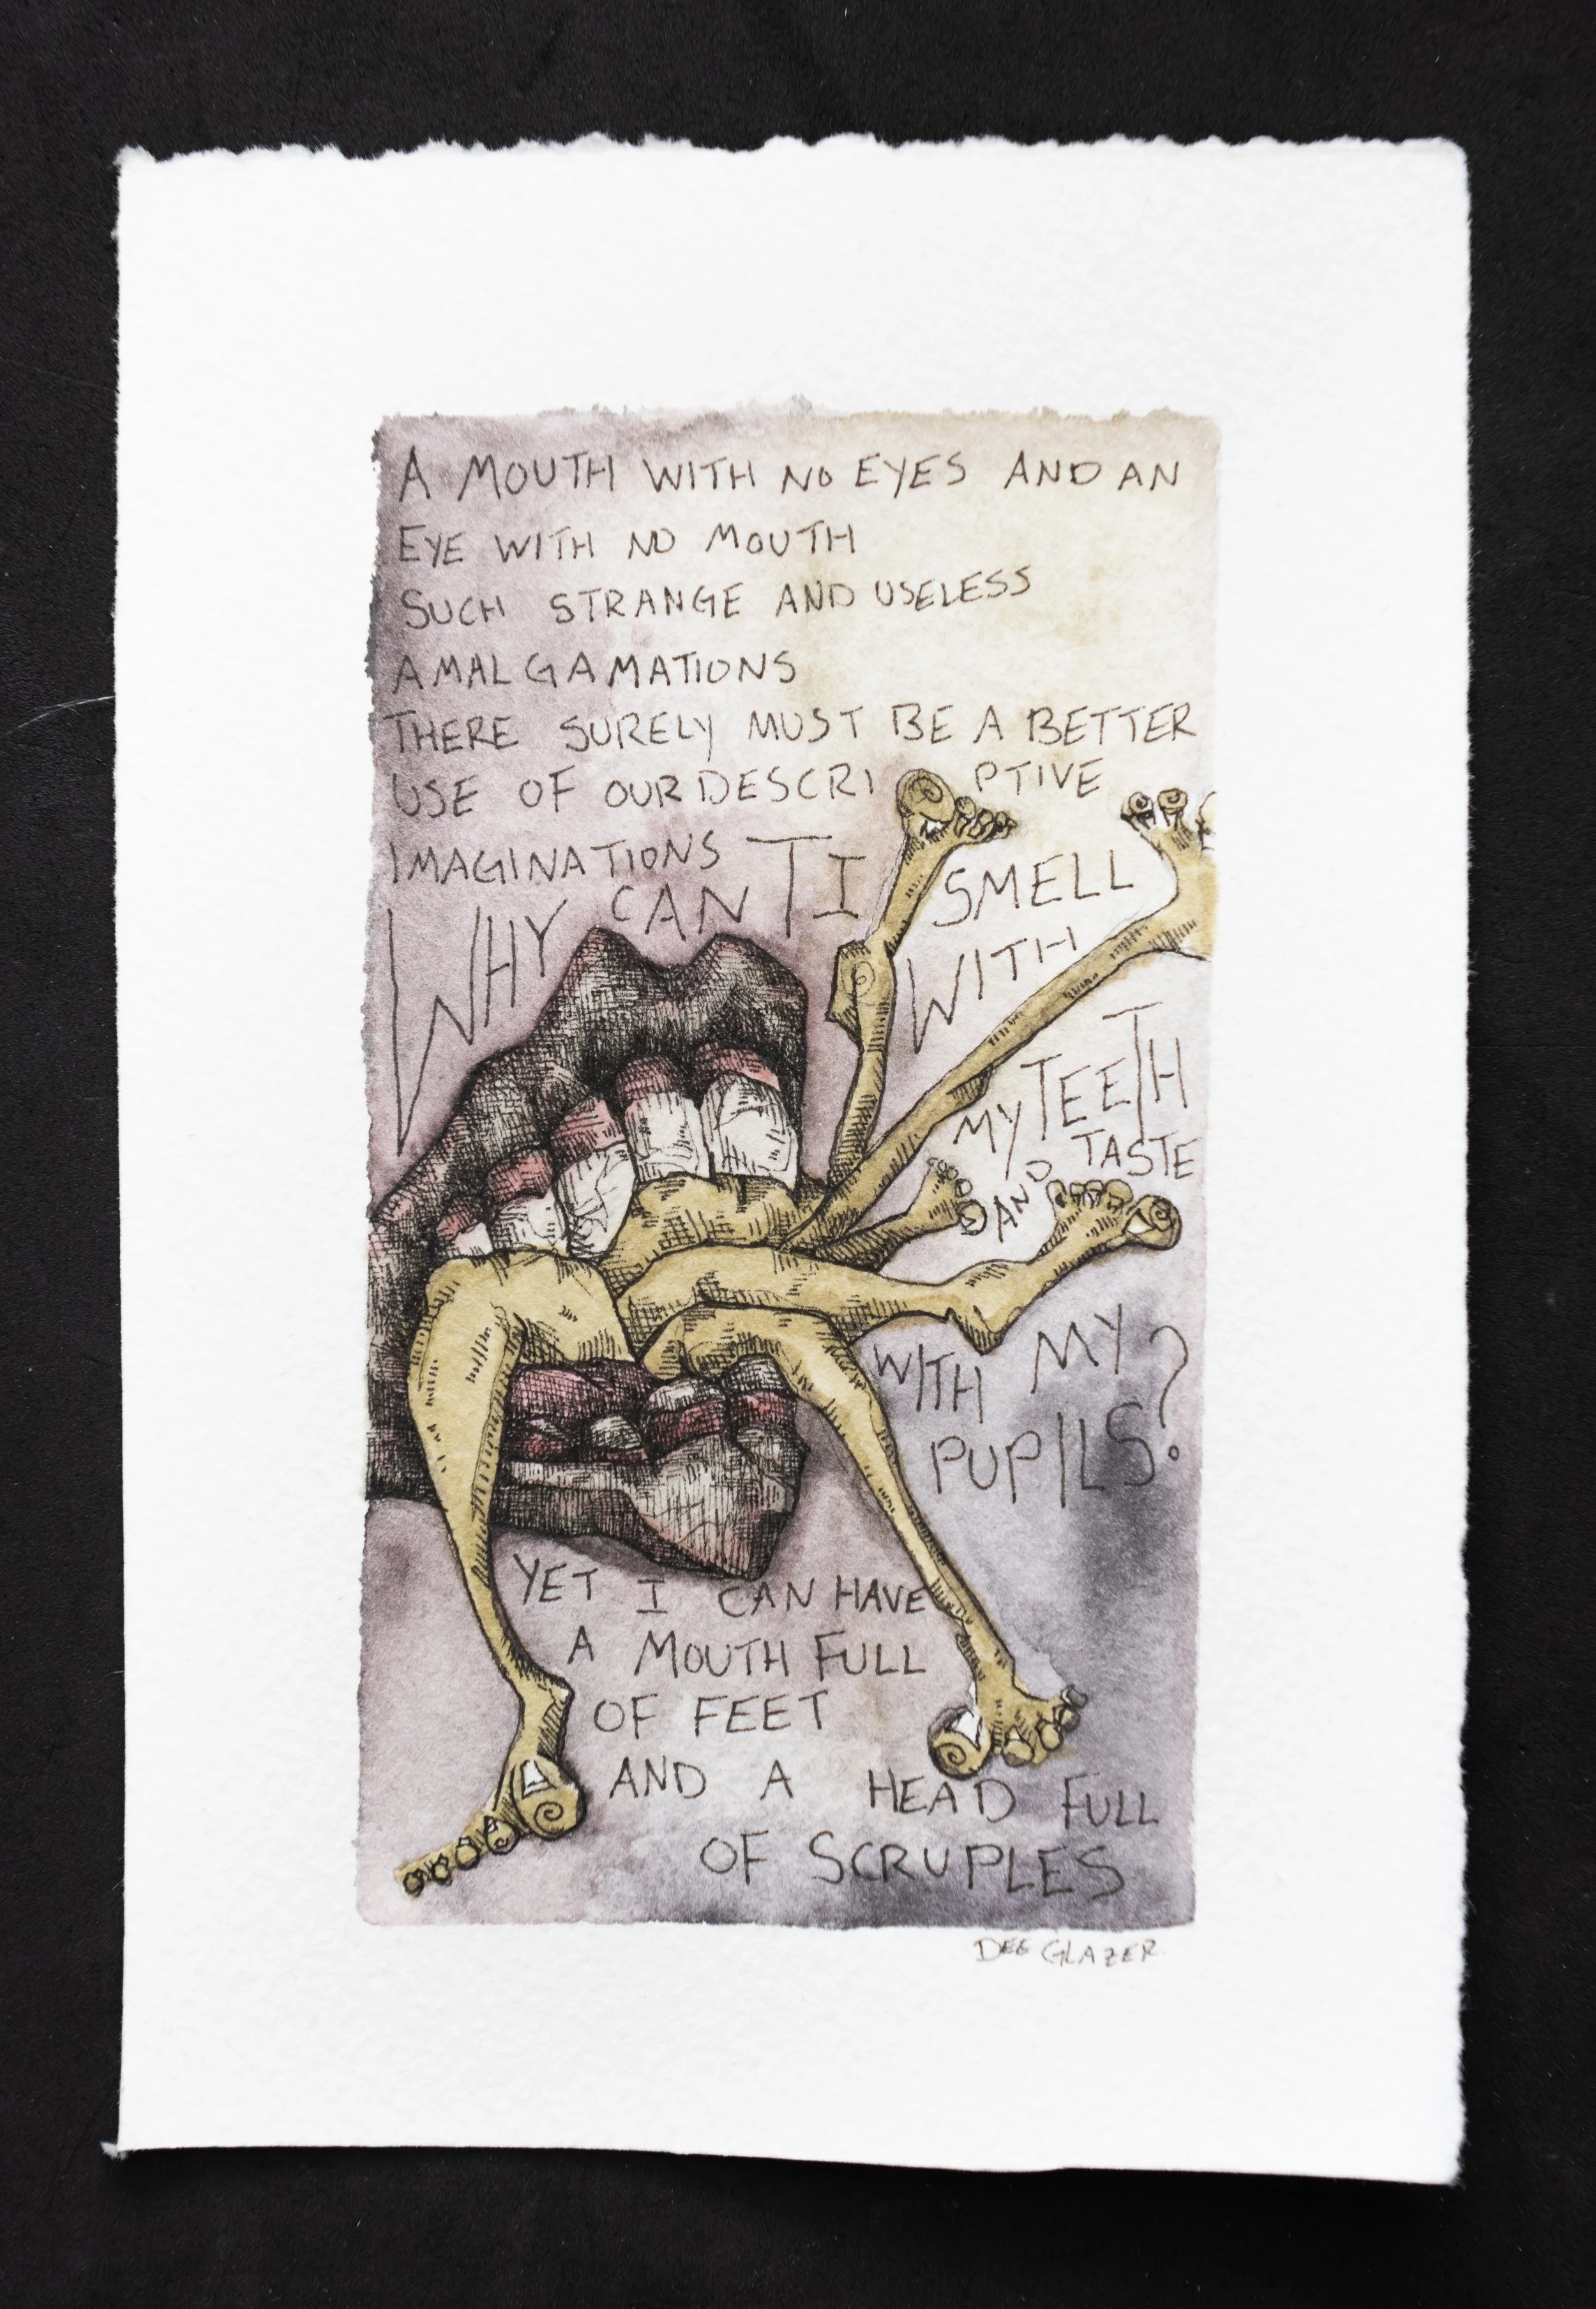 A MOUTH WITH NO EYES AND AN
EYE WITH NO MOUTH
SUCH STRANGE AND USELESS
AMALGAMATIONS
THERE SURELY MUST BE A BETTER
USE OF OUR DESCRIPTIVE
IMAGINATIONS
WHY CANT I SMELL
WITH
MY TEETH
AND TASTE
WITH MY
PUPILS?
YET I CAN HAVE
A MOUTH FULL
OF FEET
AND A HEAD FULL
OF SCRUPLES
DEE GLAZER